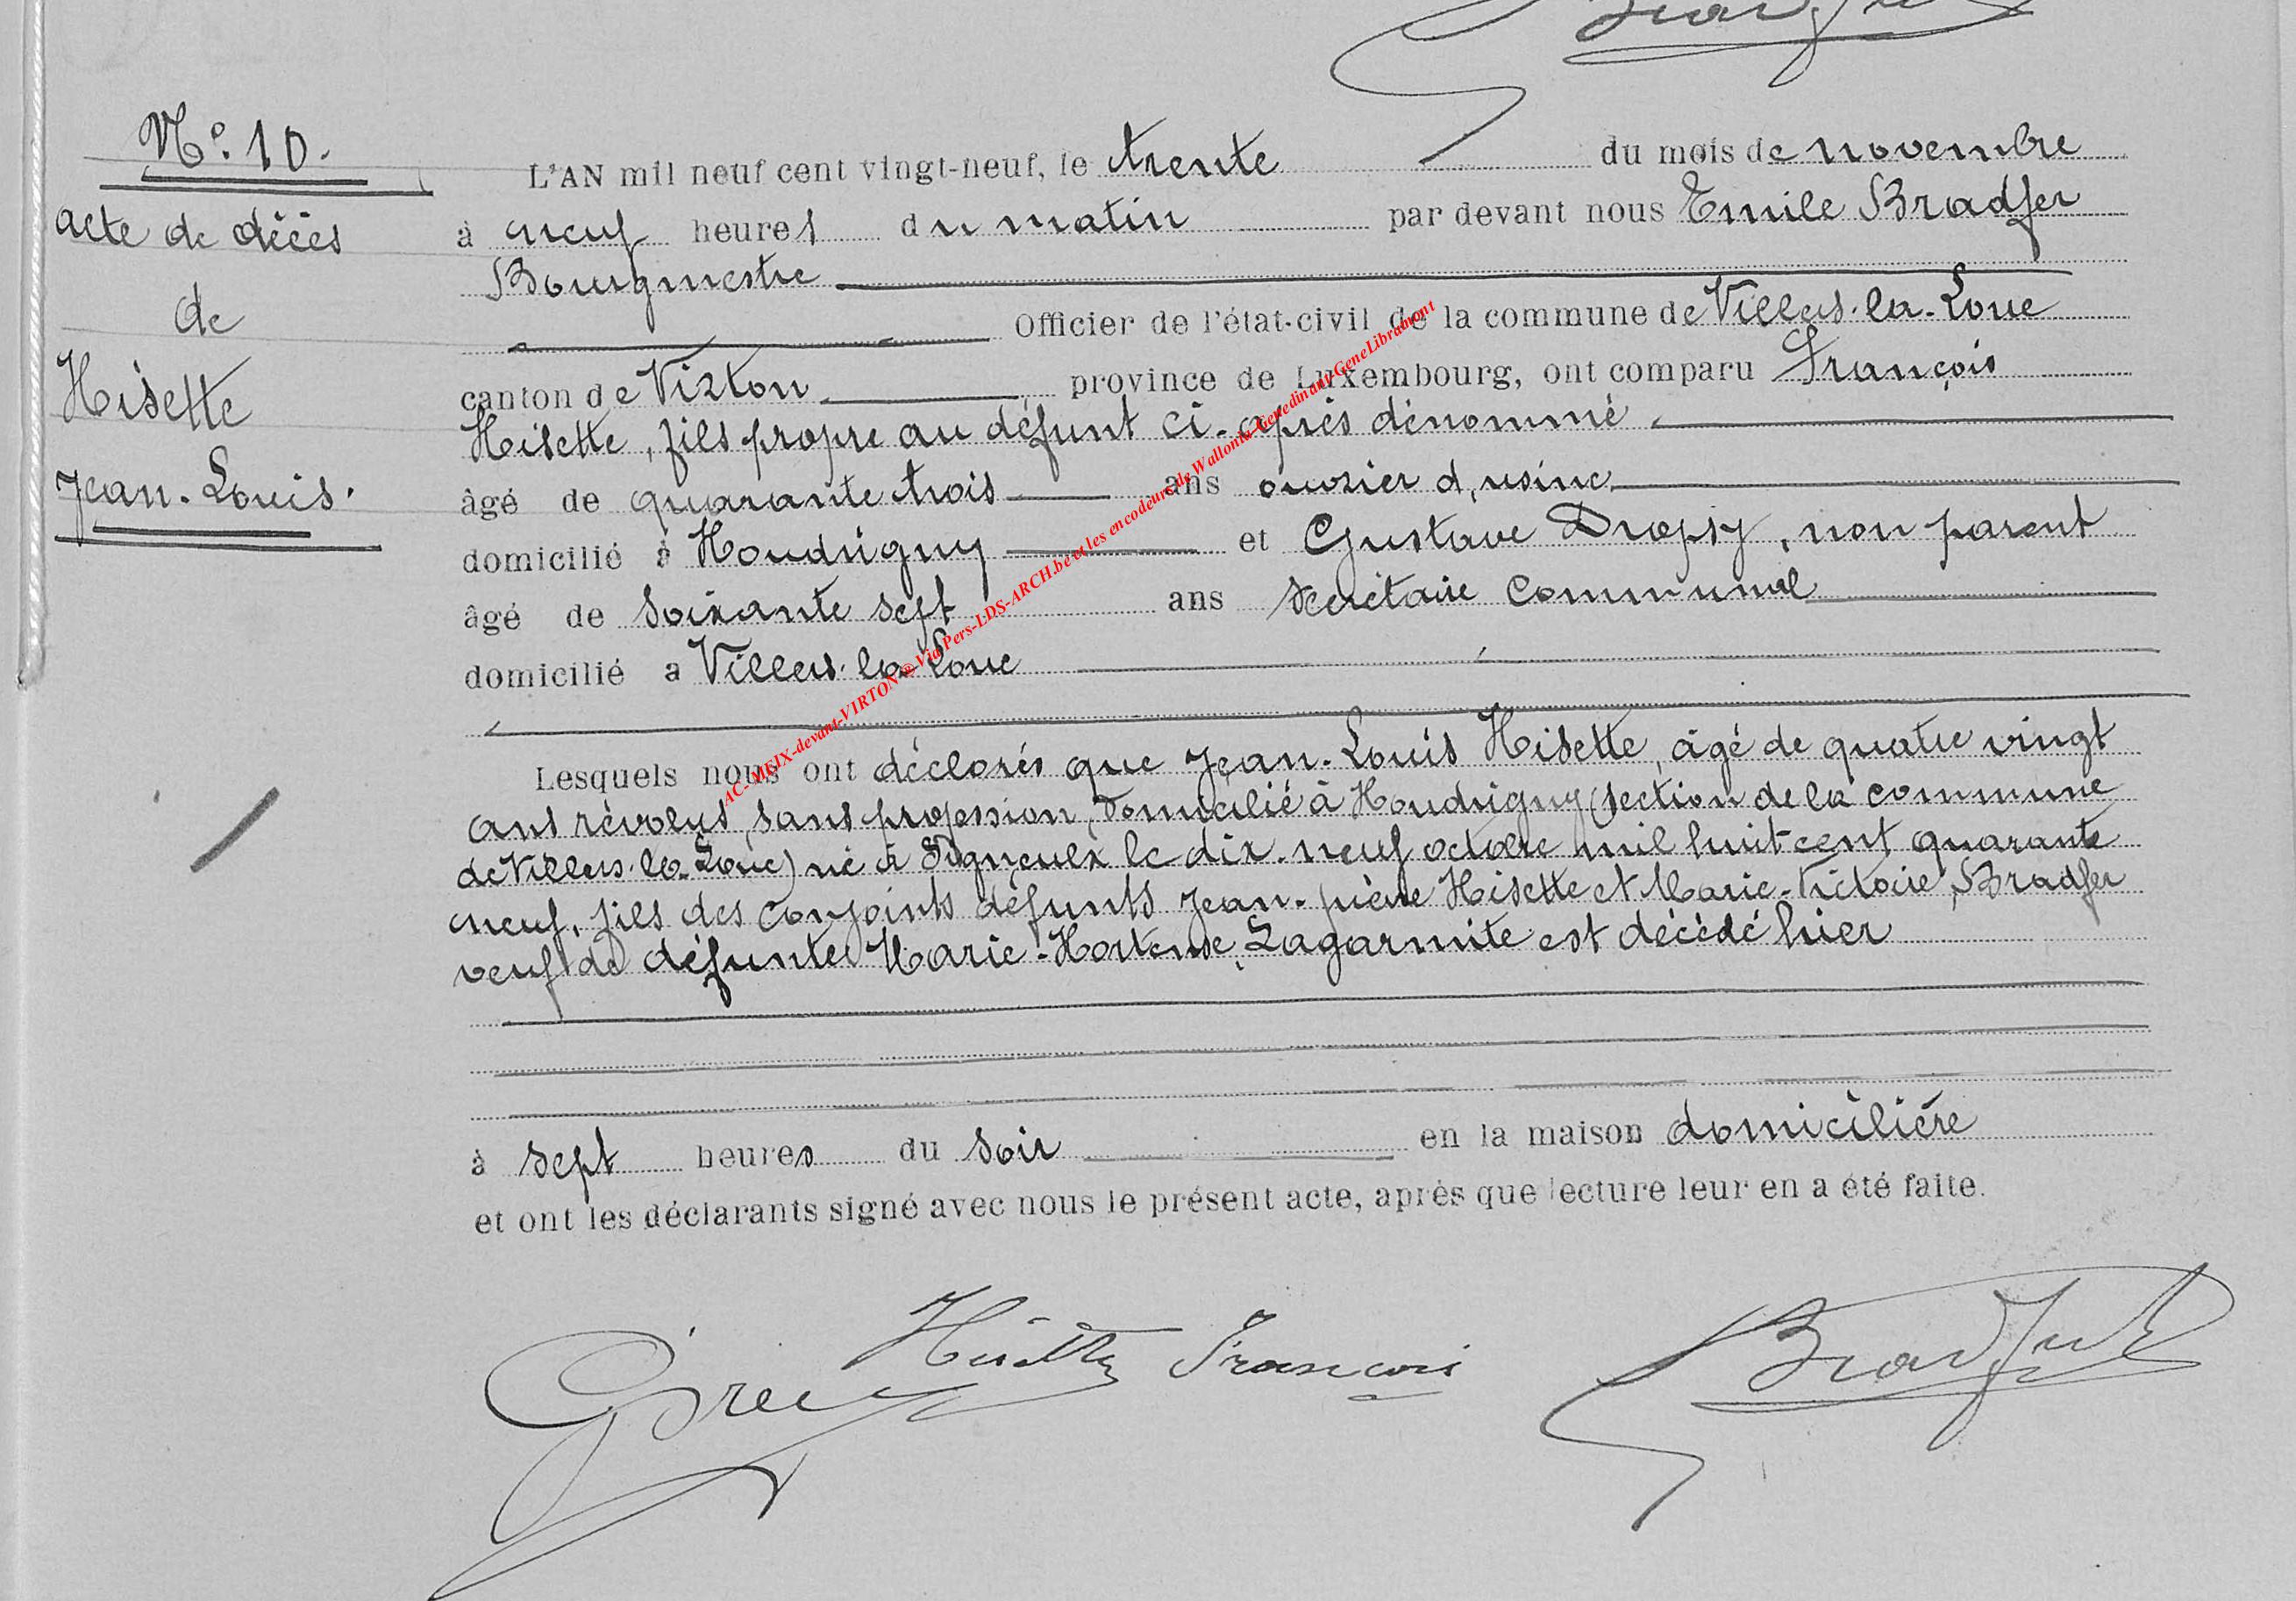 N° 10.
L'AN mil neuf cent vingt-neuf, le trente du mois de novembre
acte de décès
à neuf heures du matin par devant nous Emile Bradfer
Bourgmestre
de
Officier de l'état-civil de la commune de Villers-la-Loue
canton de Virton province de Luxembourg, ont comparu François
Hisette
Hisette, fils propre au défunt ci-après dénommé
Jean-Louis.
âgé de quarante trois ans ouvrier d'usine
domicilié à Houdrigny et Gustave Dropsy, non parent
âgé de soixante sept ans secrétaire communal
domicilié a Villers-la-Loue
Lesquels nous ont déclarés que Jean-Louis Hisette, âgé de quatre vingt
ans révolus, sans profession, domicilié à Houdrigny (section de la commune
de Villers-la-Loue) né à Signeulx le dix-neuf octobre mil huit cent quarante
neuf, fils des conjoints défunts Jean-pière Hisette et Marie-Victoire, Bradfer
veuf de défunte Marie-Hortense, Lagarmite est décédé hier
à sept heures du soir en la maison domicilière
et ont les déclarants signé avec nous le présent acte, après que lecture leur en a été faite.
Hisette François
Bradfer
AC-MEIX-devant-VIRTON © Via Pers-LDS-ARCH.be et les encodeurs de Wallonia-Genedinant-GeneLibramont